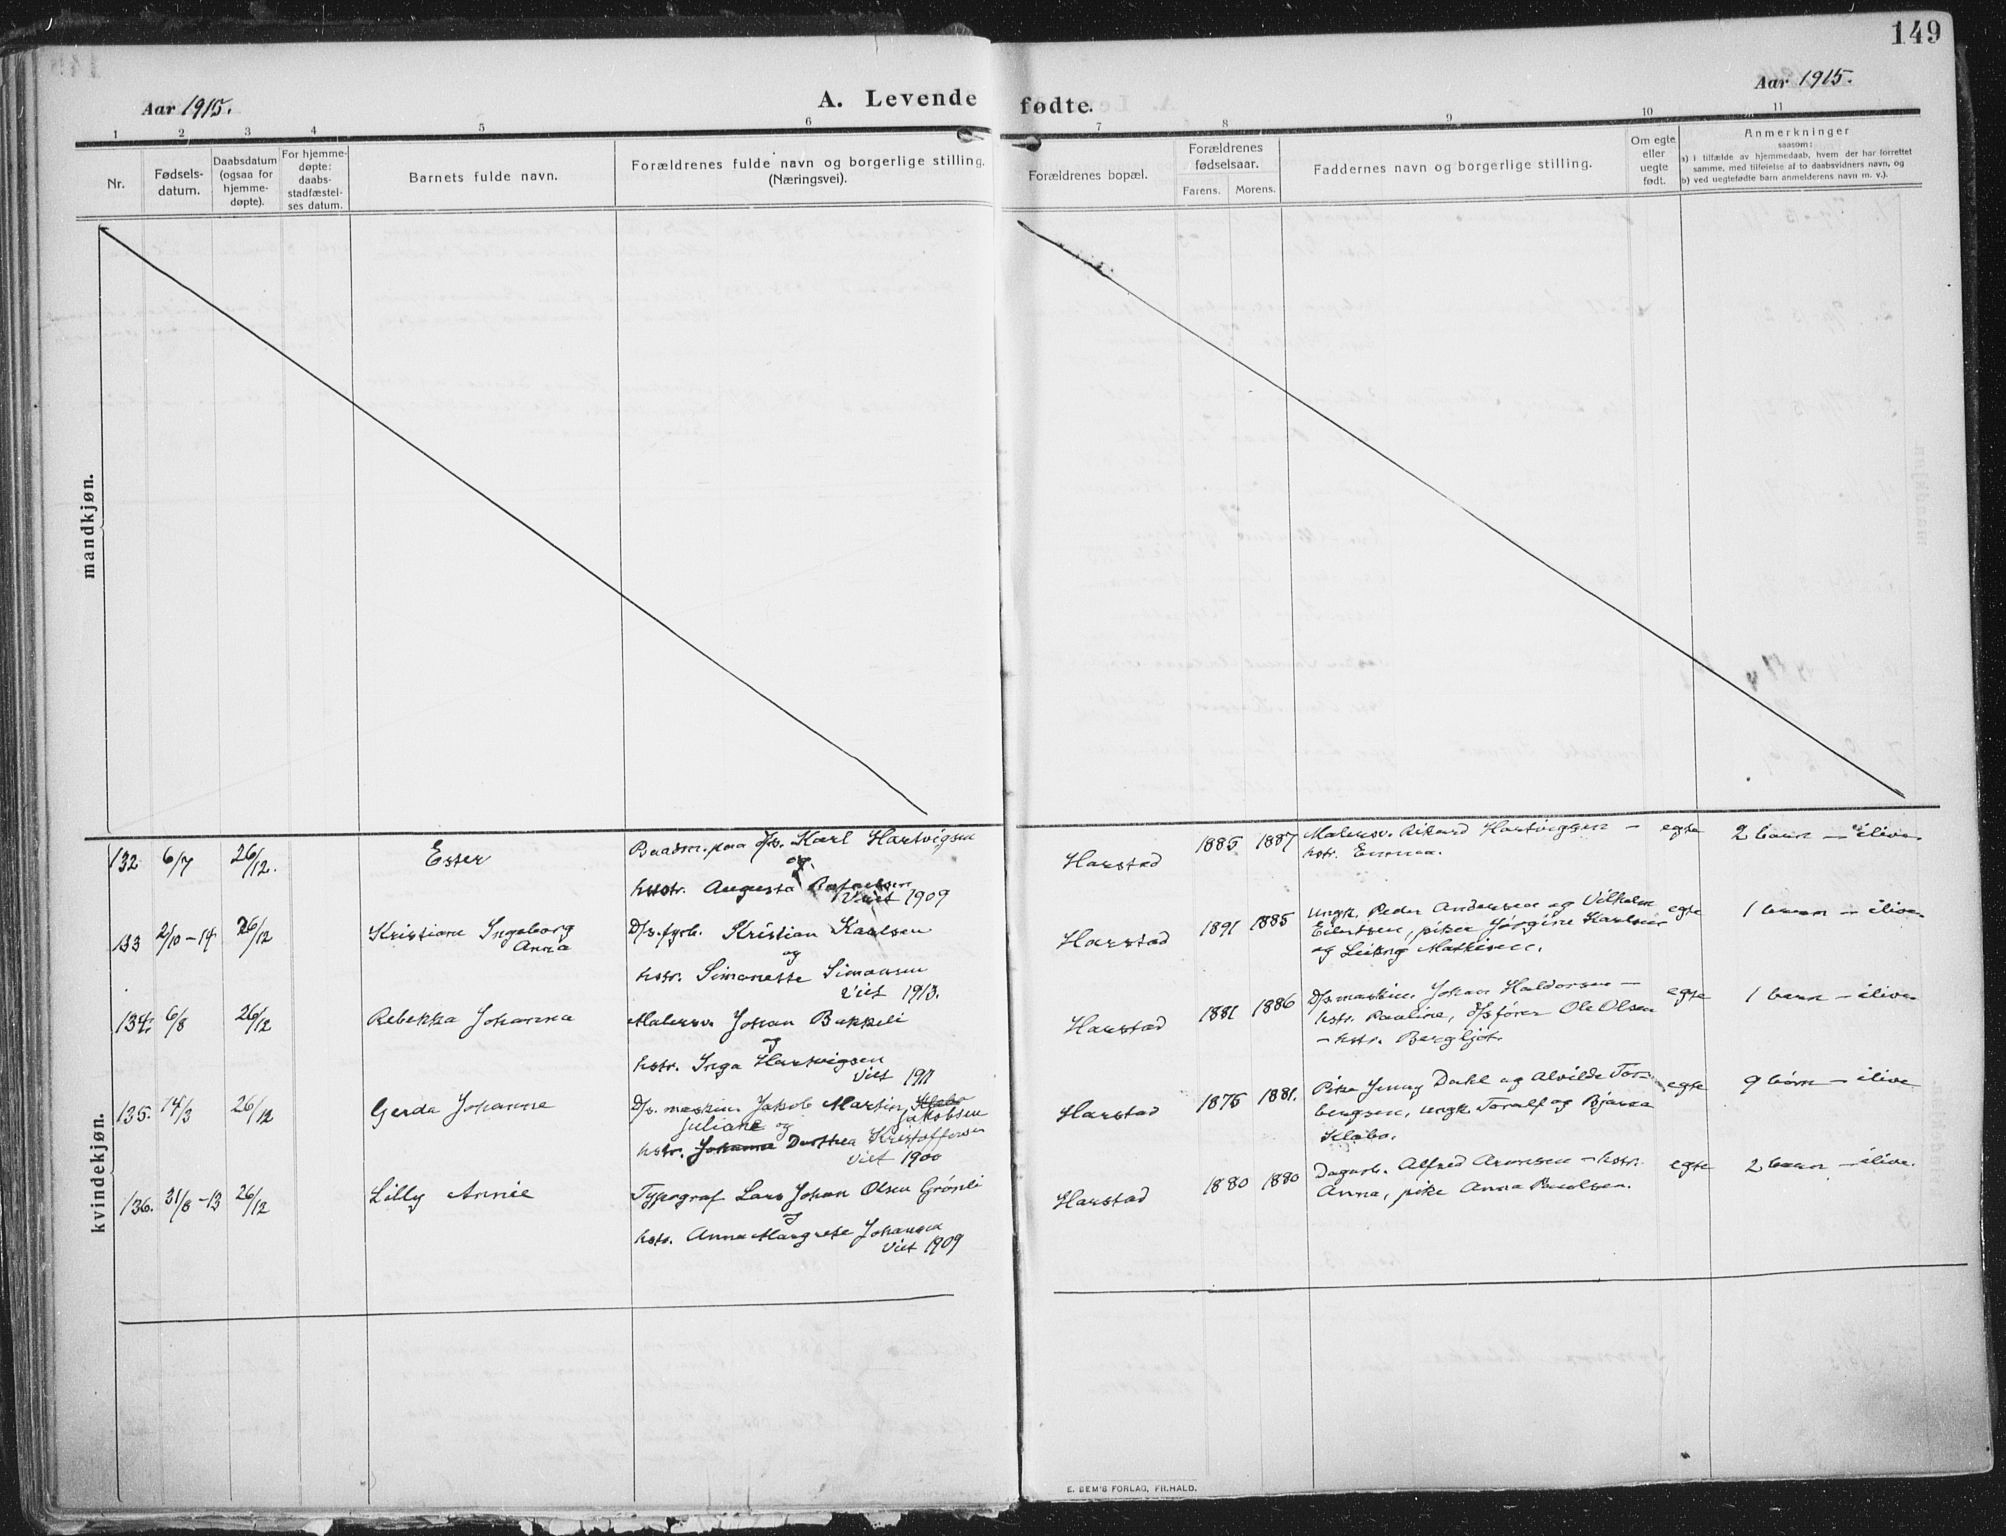 149
Aar 1915.
A. Levende fødte.
Aar 1915.
1 2 3 4 5 6 7 8 9 10 11
Nr.
Fødsels-
datum.
Daabsdatum
(ogsaa for
hjemme-
døpte).
For hjemme-
døpte:
daabs-
stadfæstel-
ses datum.
Barnets fulde navn.
Forældrenes fulde navn og borgerlige stilling.
(Næringsvei).
Forældrenes bopæl.
Forældrenes
fødselsaar.
Farens. Morens.
Faddernes navn og borgerlige stilling.
Om egte
eller
uegte
født.
Anmerkninger
saasom:
a) i tilfælde av hjemmedaab, hvem der har forrettet
samme, med tilføielse af to daabsvidners navn, og
b) ved uegtefødte barn anmelderens navn m. v.).
mandkjøn.
kvindekjøn.
132 6/7 26/12. Ester
Baadsm. paa d/s. Karl Hartvigsen
og
hustr. Augusta
Viet 1909
Harstad 1885 1887
Malersv. Rikard Hartvigsen –
hstr. Emma.
egte 2 barn – ilive
133 2/10–14 26/12 Kristiane Ingeborg
Anna
D/s.fyrb. Kristian Karlsen
og
hstr. Simonette Simonsen
Viet 1913.
Harstad 1891 1885
ungk. Peder Andersen og Vilhelm
Eilertsen, piker Jørgine Karlsen
og Mathisen.
egte 1 barn – ilive
134. 6/8 26/12 Rebekka Johanna
Malersv. Johan Bakkeli
og
hstr. Inga Hartvigsen
Viet 1911
Harstad 1881 1886
D/s.maskin. Johan Haldorsen –
hstr. Pauline, d/sfører Ole Olsen
– hstr. Bergljot.
egte 1 barn – ilive
135. 14/3 26/12 Gerda Johanne
D/s. maskin. Jakob Martin Klæbo
Jakobsen
Juliane og
hstr. Johanna Dorthea Kristoffersen
Viet 1900
Harstad 1875 1881.
Pike Jenny Dahl og Alvilde Tor-
bergsen, ungk. Toralf og Bjarne
Klæbo.
egte 9 børn – ilive
136. 31/8–13 26/12 Lilly Annie
Typograf Lars Johan Olsen Grønli
og
hstr. Anna Margrete Johanna
Viet 1909
Harstad 1880 1880
Dagarb. Alfred Arntsen – hstr.
Anna, pike Anna Paulsen.
egte 2 barn – ilive.
E. SEM'S FORLAG, FR.HALD.